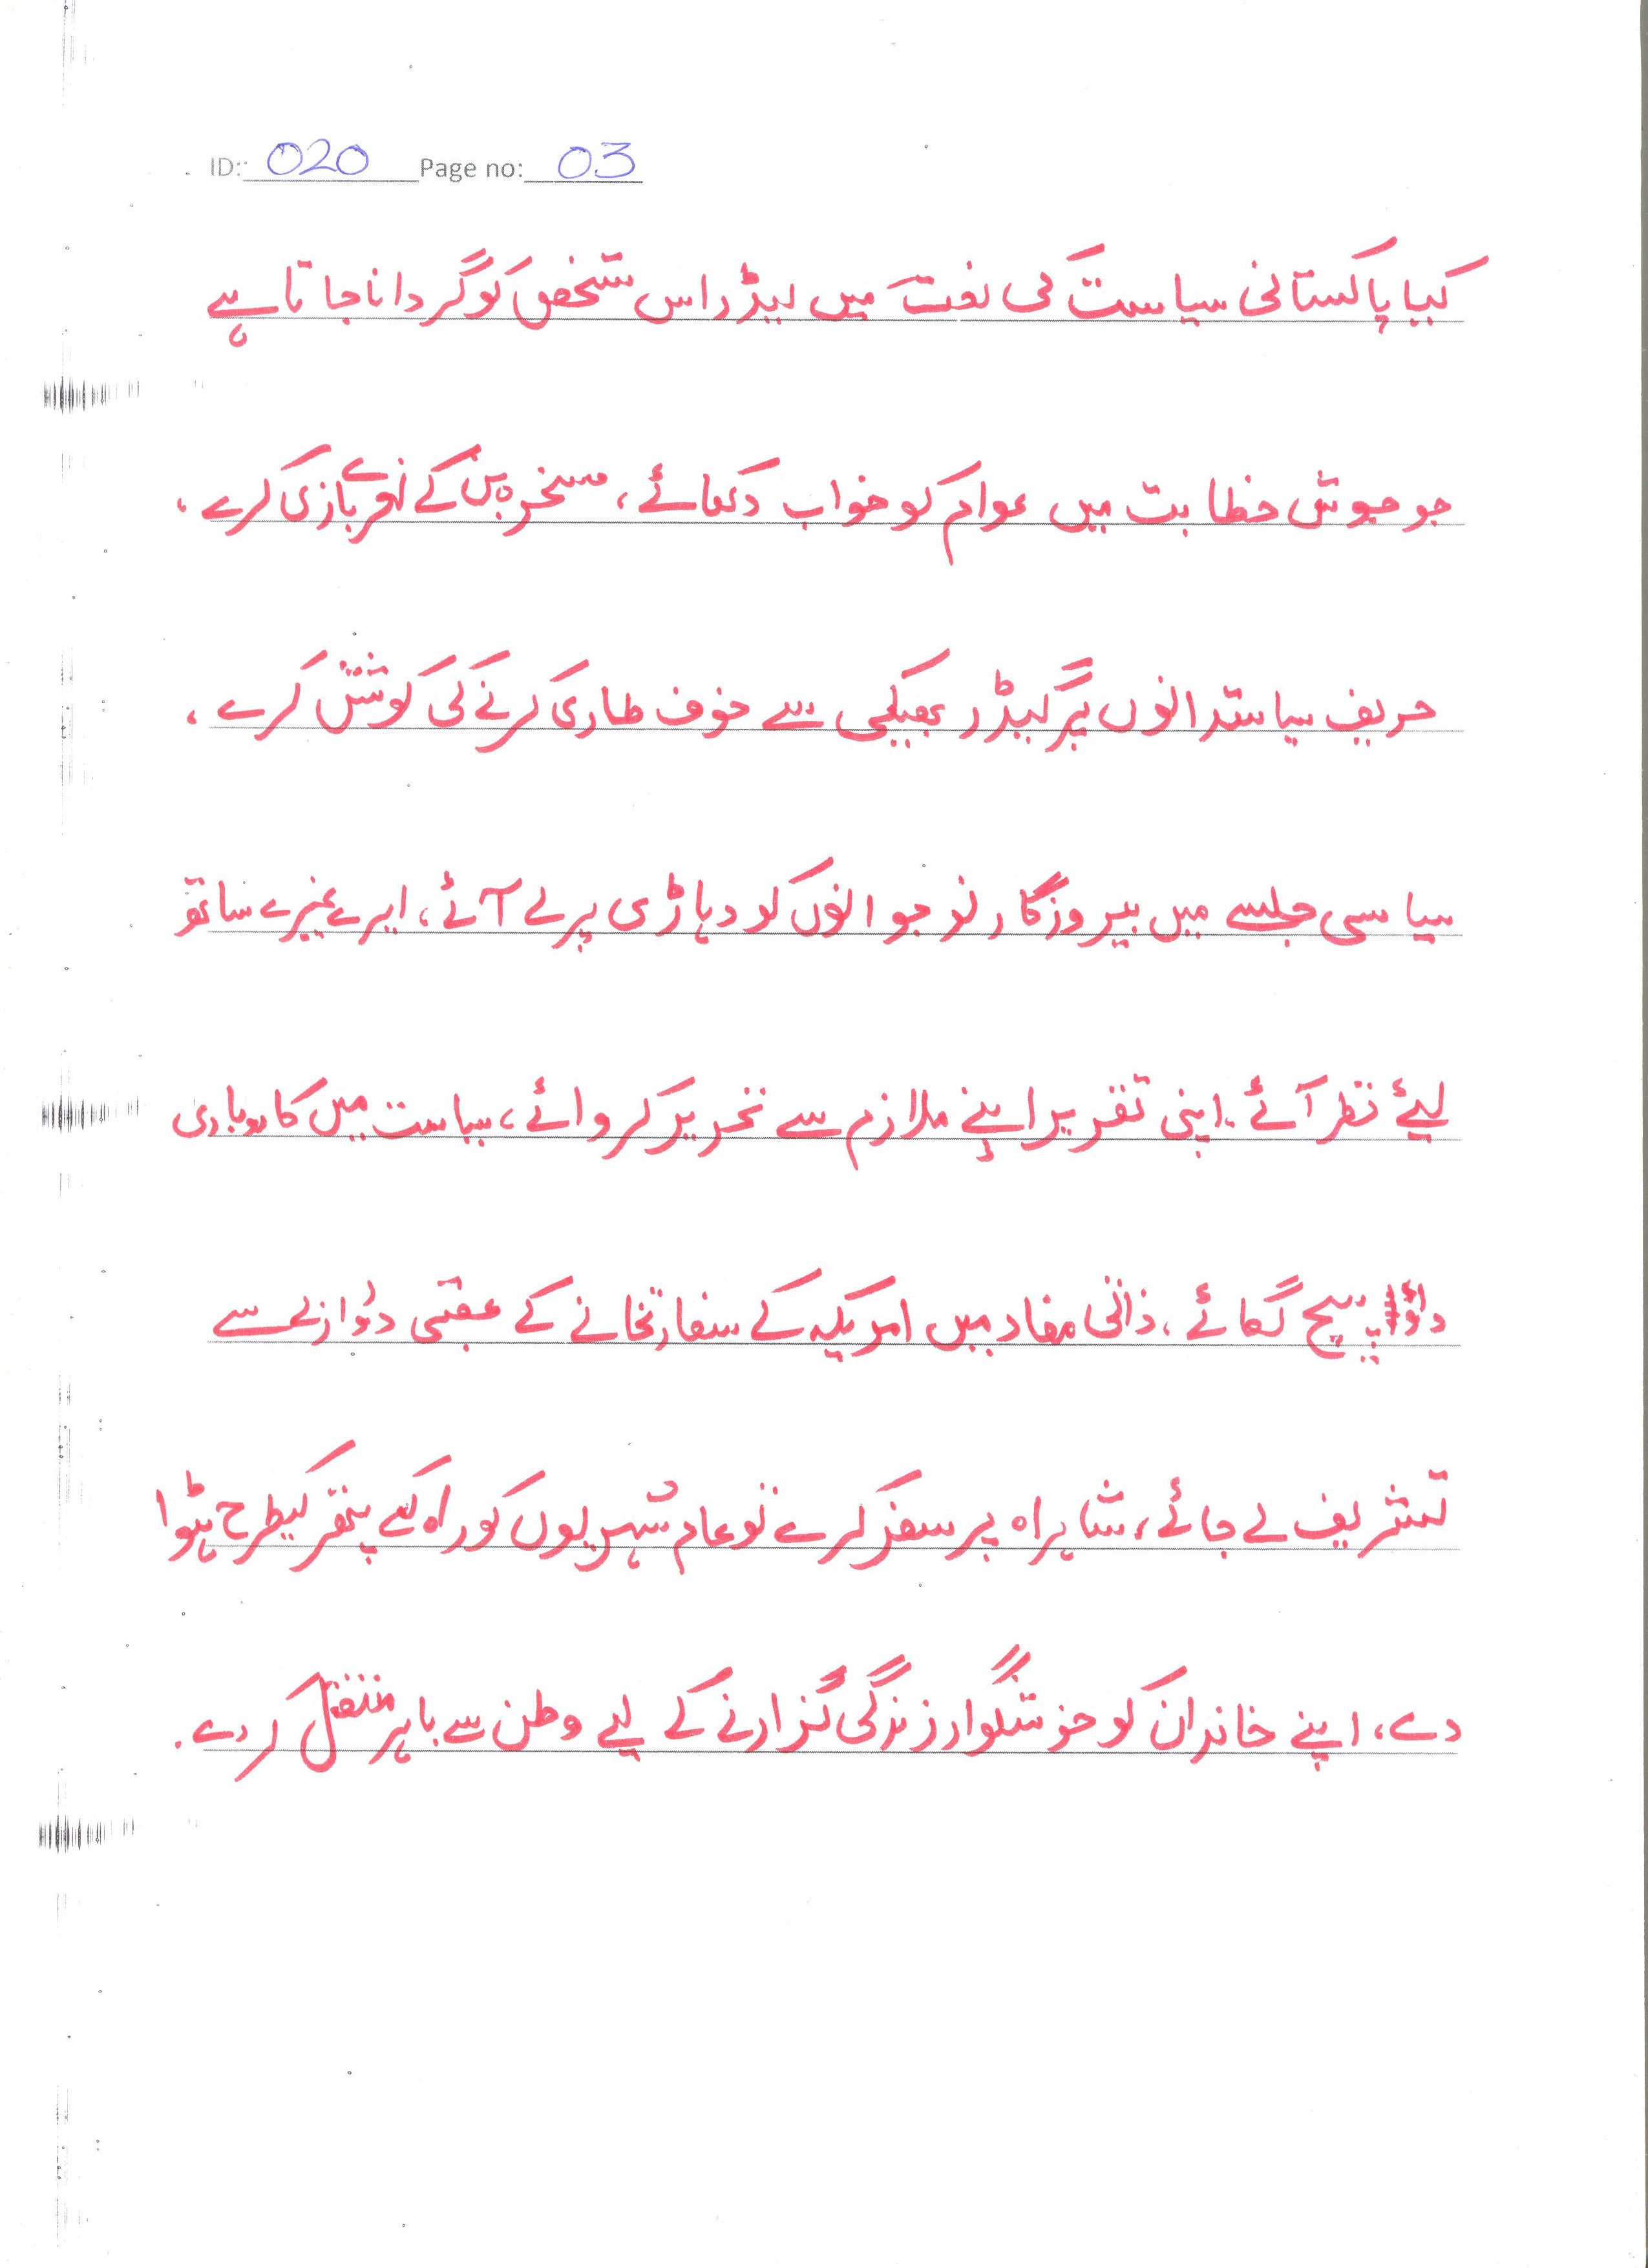 ID: 020 Page no: 03
کیا پاکستانی سیاست کی لغت میں لیڈر اس شخص کو گردانا جاتا ہے
جو جوش خطابت میں عوام کو خواب دکھائے، مسخرہ بن کے نعرے بازی کرے،
حریف سیاستدانوں پر گیڈر بھبکی سے خوف طاری کرنے کی کوشش کرے،
سیاسی جلسے میں بیروزگار نوجوانوں کو دہاڑی پر لے آئے، ایرے غیرے ساتھ
لیئے نظر آئے، اپنی تقریر اپنے ملازم سے تحریر کروائے، سیاست میں کاروباری
داؤ پیچ لگائے، ذاتی مفاد میں امریکہ کے سفارتخانے کے عقبی دروازے سے
تشریف لے جائے، شاہراہ پر سفر کرے تو عام شہریوں کو راہ کے پتھر کیطرح ہٹوا
دے، اپنے خاندان کو خوشگوار زندگی گزارنے کے لیے وطن سے باہر منتقل کر دے.